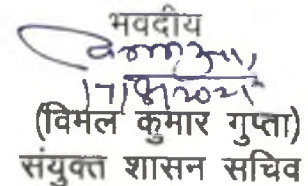 भवदीय
(विमल कुमार गुप्ता)
संयुक्त शासन सचिव